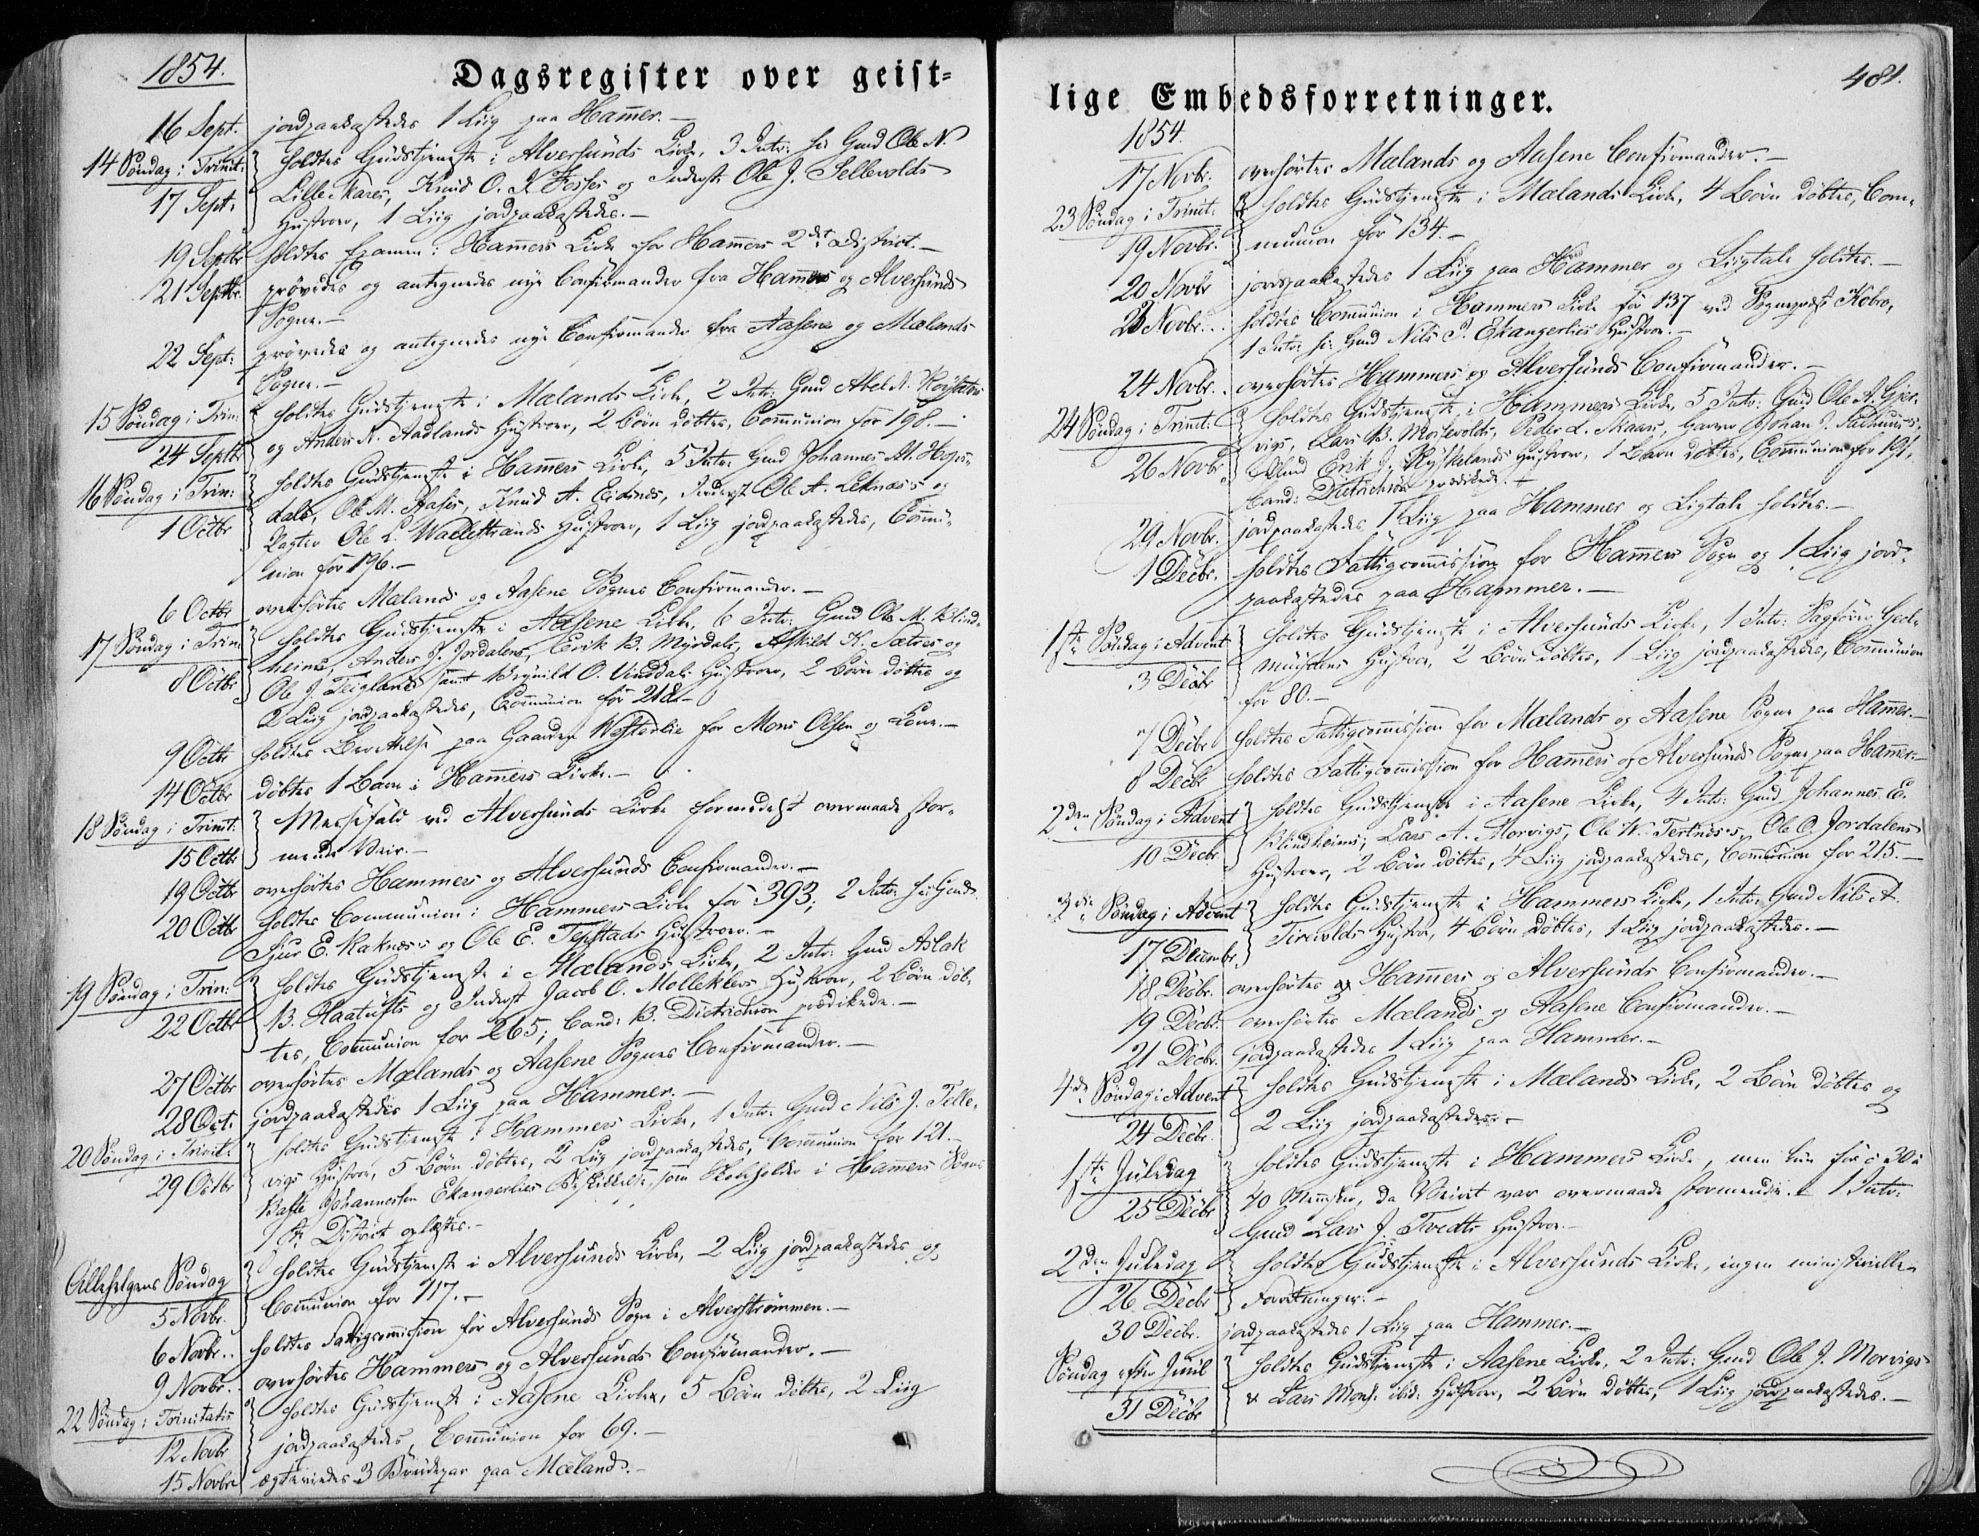 1854.
Dagsregister over geist=
16 Sept. jordpaakastedes 1 Liig paa Hamer.-
14 Søndag i Trinit: holdtes Gudstjeneste i Alversunds Kirke, 3 Intr: h: Gmd Ole N.
17 Sept: Lille Kares, Knud O. Fosses og Inderst Ole J. Sellevolds
Hustroer, 1 Liig jordpaakastedes.-
19 Septbr holdtes Examen i Hamers Kirke for Hamers 2det District.-
21 Septbr. prøvedes og antegnedes nye Confirmander fra Hamers og Alversunds
Sogne.-
22 Sept: prøvedes og antegnedes nye Confirmander fra Aasene og Mælands
Sogne.-
15 Søndag i Trin: holdtes Gudstjeneste i Mælands Kirke, 2 Intr: Gmd Abel N.
24 Septbr og Anders N. Aadlands Hustroer, 2 Børn døbtes, Communion for 198.-
16 Søndag i Trin: holdtes Gudstjeneste i Hamers Kirke, 5 Intr: Gmd Johannes
1 Octbr dals, Ole M. Aases, Knud A. Eidsnes, Inderst Ole A. Leknæs's og
Ole L. Hustroer, 1 Liig jordpaakastedes, Commu-
nion for 196.-
6 Octbr overhørtes Mælands og Aasene Sognes Confirmander.-
17 Søndag i Trin holdtes Gudstjeneste i Aasene Kirke, 6 Intr: Gmd Ole M. Blind-
8 Octbr heims, Anders J. Jordalens, Erik B. Myrdals, Askild K. Sætres og
Ole J. Teiglands samt Brynild O. Hustroer, 2 Børn døbtes og
2 Liig jordpaakastedes, Communion for 218.-
9 Octbr holdtes Berettelse paa Gaarden for Mons Olsen og Kone.-
14 Octbr døbtes 1 Barn i Hamers Kirke.-
18 Søndag i Trinit: Messefald ved Alversunds Kirke formedelst overmaade stor-
15 Octbr mende Veir.-
19 Octbr overhørtes Hammers og Alversunds Confirmander.-
20 Octbr holdtes Communion i Hammers Kirke for 393; 2 Intr: h: Gmd
Sjur E. Raknæs's og Ole E. Tepstads Hustroer.-
19 Søndag i Trin: holdtes Gudstjeneste i Mælands Kirke, 2 Intr: Gmd Aslak
22 Octbr B. Haatufts og Inderst Jacob O. Molleklevs Hustroer, 2 Børn døb-
tes, Communion for 265; Cand: B. Dietrichson prædikede.-
27 Octbr overhørtes Mælands og Aasene Sognes Confirmander.-
28 Oct. jordpaakastedes 1 Liig paa Hammer.-
20 Søndag i Trinit: holdtes Gudstjeneste i Hammers Kirke, 1 Intr: Gmd Nils J. Telle-
29 Octbr vigs Hustroe, 5 Børn døbtes, 2 Liig jordpaakastedes, Communion for 121.-
Johannessen Ekangerlies Beskikkelse som Skoleholder i Hamers Sogns
1ste District oplæstes.-
Allehelgens Søndag holdtes Gudstjeneste i Alversunds Kirke, 2 Liig jordpaakastedes og
5 Novbr. Communion for 117.-
6 Novbr.. holdtes Fattigcommission for Alversunds Sogn i Alverstrømmen.-
9 Novbr. overhørtes Hammers og Alversunds Confirmander.-
22 Søndag i Trinitatis holdtes Gudstjeneste i Aasene Kirke, 5 Børn døbtes, 2 Liig
12 Novbr jordpaakastedes, Communion for 69.-
15 Novbr ægteviedes 3 Brudepar paa Mæland.-
lige Embedsforretninger.
481.
1854.
17 Novbr. overhørtes Mælands og Aasene Confirmander.-
23 Søndag i Trinit: holdtes Gudstjeneste i Mælands Kirke, 4 Børn døbtes, Com-
19 Novbr. munion for 134.-
20 Novbr jordpaakastedes 1 Liig paa Hammer og Liigtale holdtes.-
23 Novbr.. holdtes Communion i Hammers Kirke for 137 ved Sognepræst Kobro,
1 Intr: h: Gmd Nils P. Ekangerlies Hustroe.-
24 Novbr. overhørtes Hammers og Alversunds Confirmander.-
24 Søndag i Trinit: holdtes Gudstjeneste i Hammers Kirke, 5 Intr: Gmd Ole A. Gjer-
26 Novbr vigs, Lars B. Peder L. Skaars, Johan J.
Gmd Erik J. Hustroer, 1 Barn døbtes, Communion for 191,
Cand: Dietrichson prædikede.-
29 Novbr. jordpaakastedes 1 Liig paa Hammer og Ligtale holdtes.-
1 Decbr. holdtes Fattigcommission for Hamers Sogn og 1 Liig jord-
paakastedes paa Hammer.-
1ste Søndag i Advent holdtes Gudstjeneste i Alversunds Kirke, 1 Intr: Sagfører Geel-
3 Decbr muydens Hustroe, 2 Børn døbtes, 1 Liig jordpaakastedes, Communion
for 80.-
7 Decbr holdtes Fattigcomission for Mælands og Aasene Sogne paa Hamer.-
8 Decbr holdtes Fattigcommission for Hamers og Alversunds Sogne paa Hamer.-
2den Søndag i Advent holdtes Gudstjeneste i Aasene Kirke, 4 Intr: Gmd Johannes E.
10 Decbr Blindheims, Lars A. Morvigs, Ole W. Tertnes's, Ole O. Jordalens
Hustroer, 2 Børn døbtes, 4 Liig jordpaakastedes, Communion for 215.-
3die Søndag i Advent holdtes Gudstjeneste i Hammers Kirke, 1 Intr: Gmd Nils A.
17 Decembr. Tirevolds Hustroe, 4 Børn døbtes, 1 Liig jordpaakastedes.-
18 Decbr. overhørtes Hamers og Alversunds Confirmander.-
19 Decbr. overhørtes Mælands og Aasene Confirmander.-
21 Decbr. jordpaakastedes 1 Liig paa Hammer.-
4de Søndag i Advent holdtes Gudstjeneste i Mælands Kirke, 2 Børn døbtes og
24 Decbr. 2 Liig jordpaakastedes.-
1ste Juledag holdtes Gudstjeneste i Hammers Kirke, men kun for c: 30 à
25 Decbr 40 Mennesker, da Veiret var overmaade stormende. 1 Intr:
Gmd Lars J. Tvedts Hustroe.-
2den Juledag holdtes Gudstjeneste i Alversunds Kirke, ingen ministerielle
26 Decbr Forretninger.-
30 Decbr. jordpaakastedes 1 Liig paa Hammer.-
Søndag efter Juul holdtes Gudstjeneste i Aasene Kirke, 2 Intr: Gmd Ole J. Morvigs
31 Decbr & Lars Mons. ibid: Hustroer, 2 Børn døbtes, 1 Liig jordpaakastedes.-